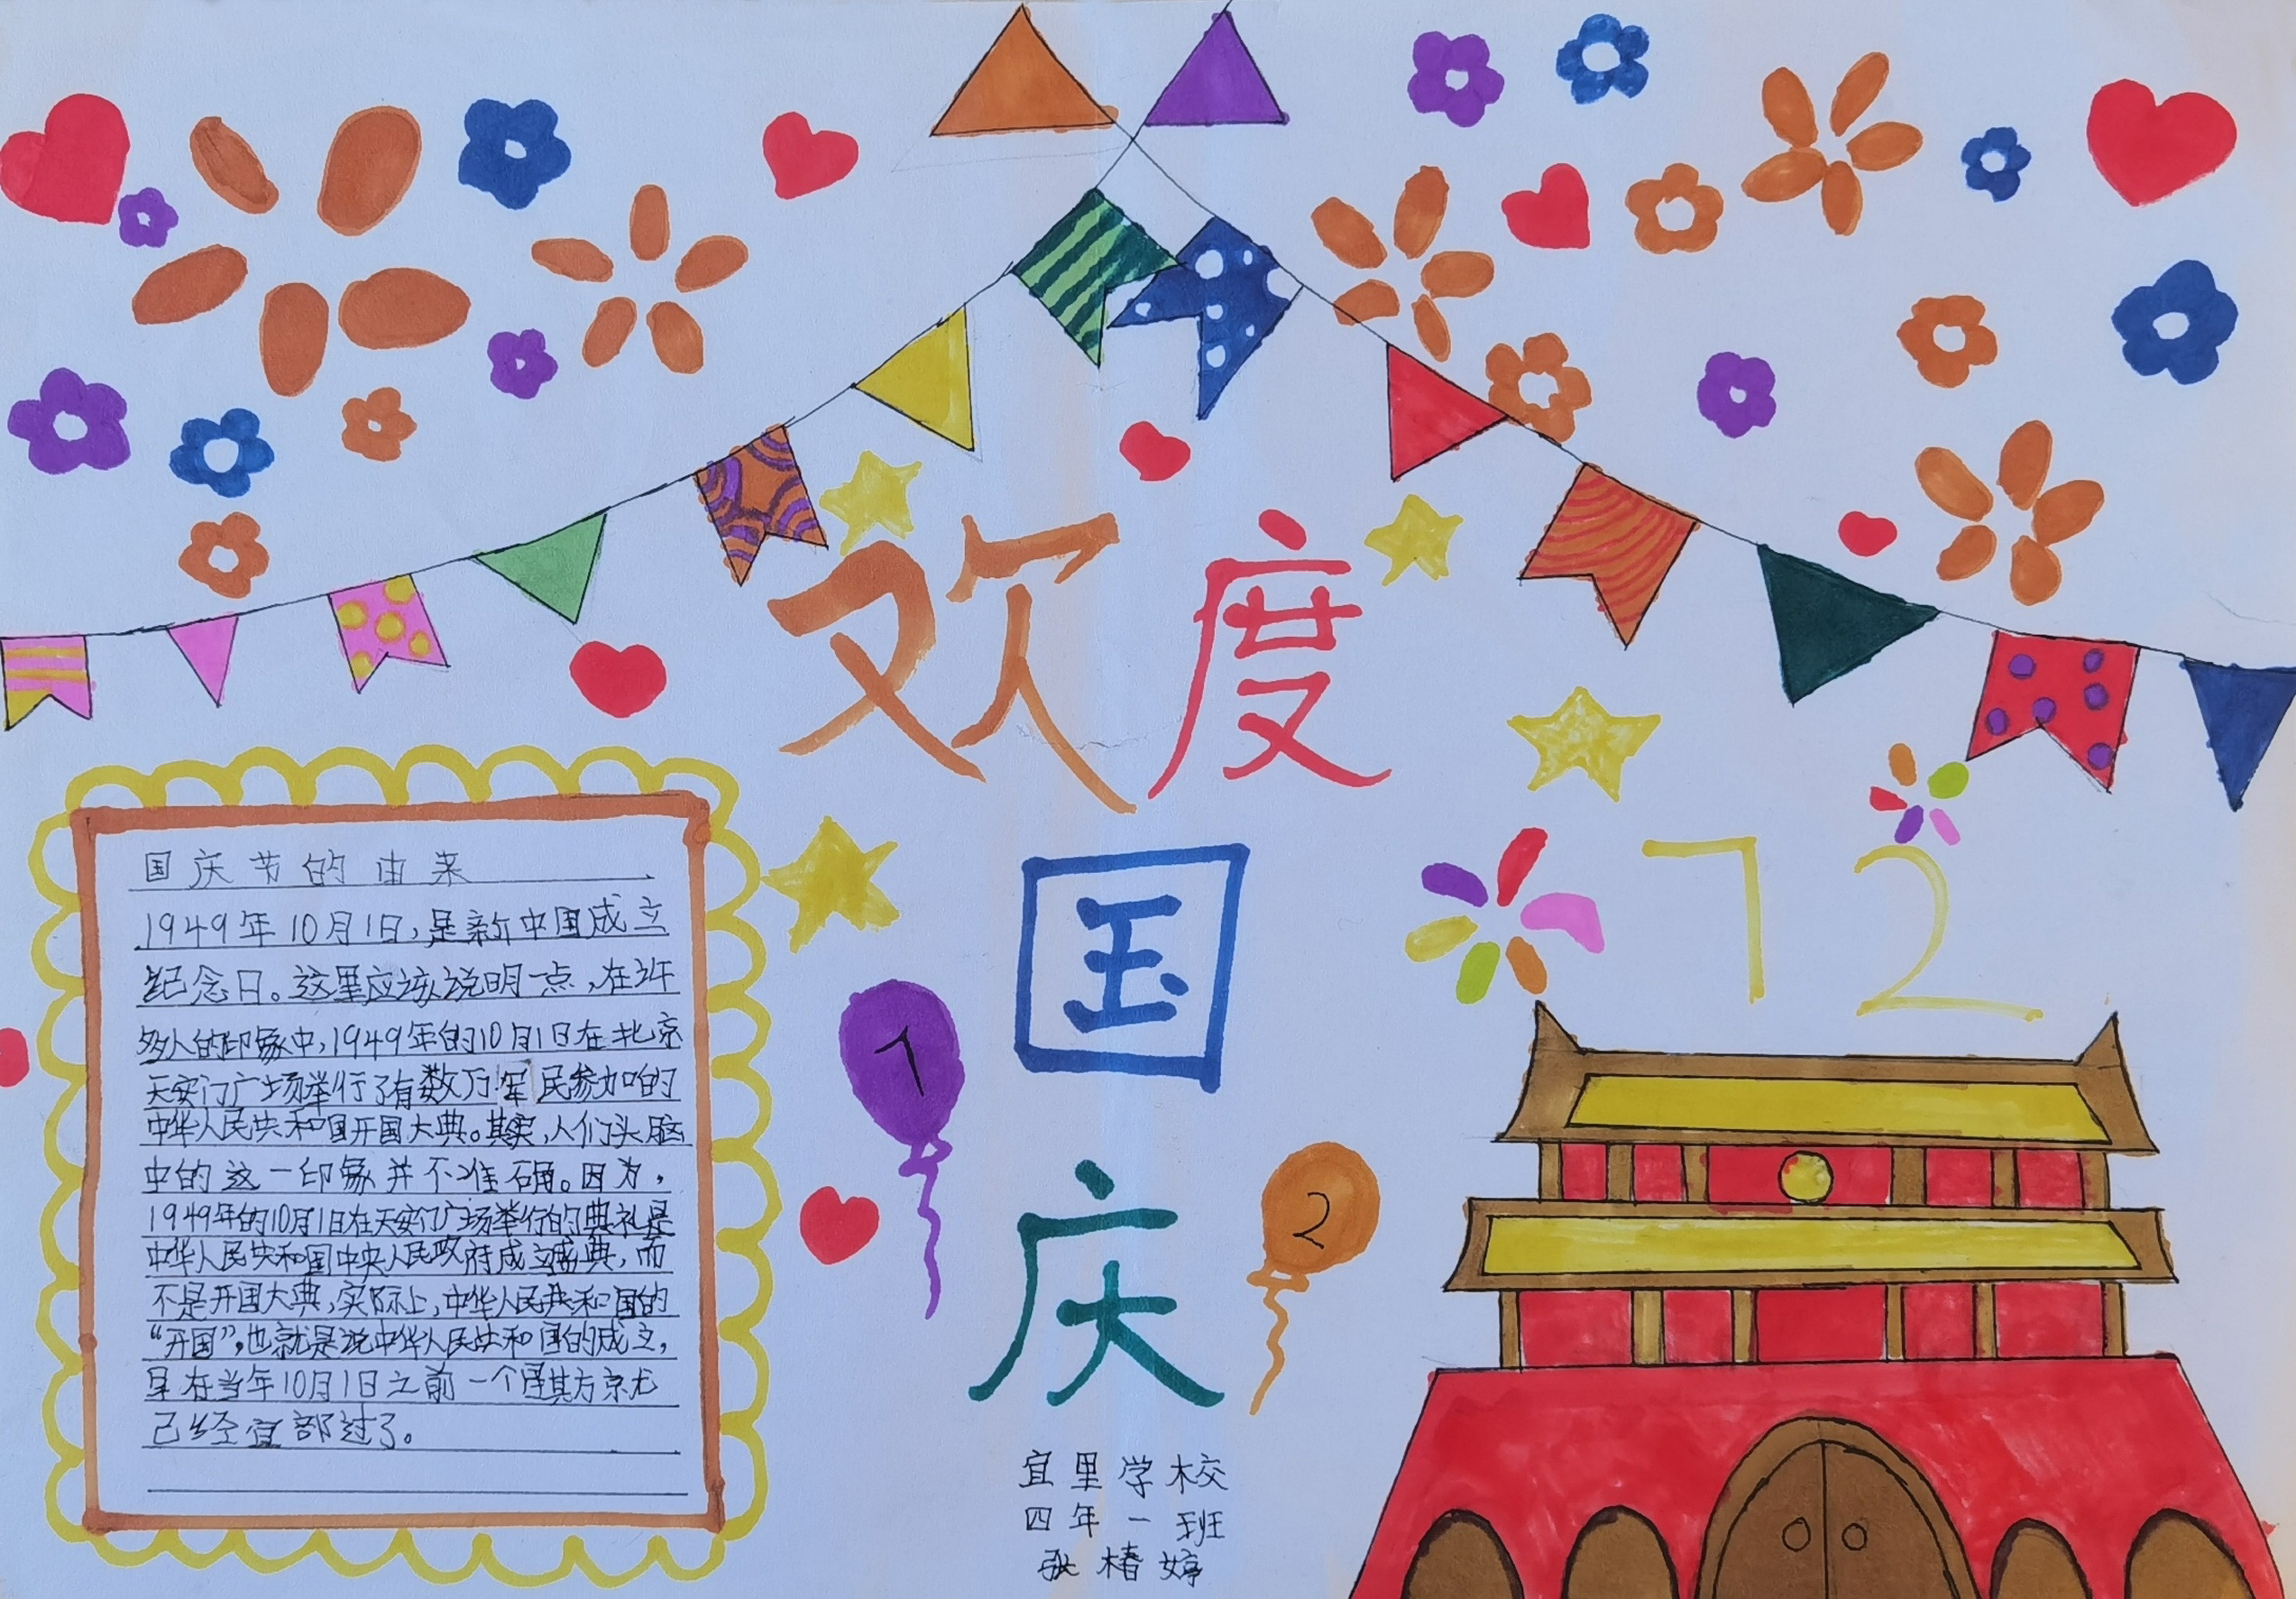 欢度
国
庆
72
1
2
国庆节的由来
1949年10月1日,是新中国成立
纪念日。这里应该说明一点,在许
多人的印象中,1949年的10月1日在北京
天安门广场举行了有数万军民参加的
中华人民共和国开国大典。其实,人们头脑
中的这一印象并不准确。因为,
1949年的10月1日在天安门广场举行的典礼是
中华人民共和国中央人民政府成立盛典,而
不是开国大典,实际上,中华人民共和国的
“开国”,也就是说中华人民共和国的成立,
早在当年10月1日之前一个
已经宣部过了。
宜里学校
四年一班
张椿婷